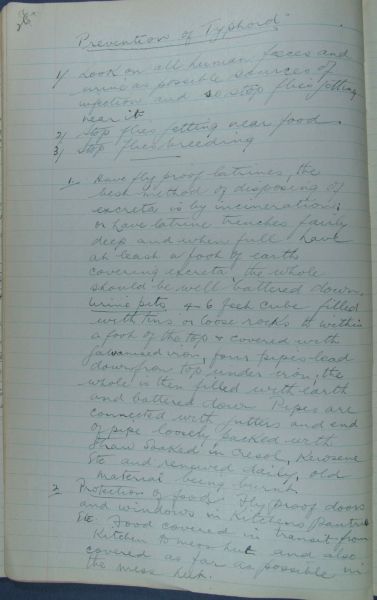 Prevention of Typhoid
1/ Look on all human faeces and
urine as possible sources of
infection and so stop flies getting
near it
2/ Stop flies getting near food.
3/ Stop flies breeding
1. Have fly proof latrines, the
best method of disposing of
excreta is by incineration;
or have latrine trenches fairly
deep and when full have
at least a foot of earth
covering excreta, the whole
should be well battered down.
Urine pits 4-6 feet cube filled
with tins or loose rocks to within
a foot of the top & covered with
galvanised iron, four pipes lead
down from top under iron, the
whole is then filled with earth
and battered down Pipes are
connected with gutters and end
of pipe loosely packed with
straw soaked in Cresol, Kerosene
etc and renewed daily, old
material being burnt.
2 Protection of food. Fly proof doors
and windows in Kitchens, pantries
etc. Food covered in transit from
Kitchen to mess hut and also in
covered as far as possible
the mess hut.